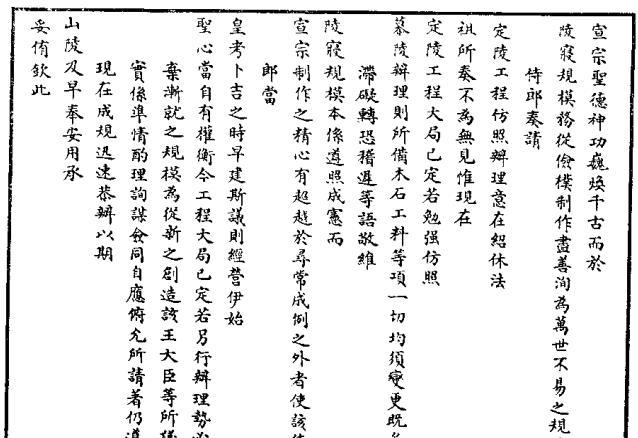 宣宗聖德神功巍煥千古而於
陵寢規模務從儉樸制作盡善洵為萬世不易之規
侍郎奏請
定陵工程仿照辦理意在紹休法
祖所奏不為無見惟現在
定陵工程大局已定若勉强仿照
慕陵辦理則所備木石工料等項一切均須變更既
滯礙轉恐稽遲等語敬維
陵寢規模本係遵照成憲而
宣宗制作之精心有超越於尋常成例之外者使該
郎當
皇考卜吉之時早建斯議則經營伊始
聖心當自有權衡今工程大局已定若另行辦理勢必
棄漸就之規模為從新之創造該王大臣等所議
實係準情酌理詢謀僉同自應俯允所請著仍遵
現在成規迅速恭辦以期
山陵及早奉安用承
妥侑欽此